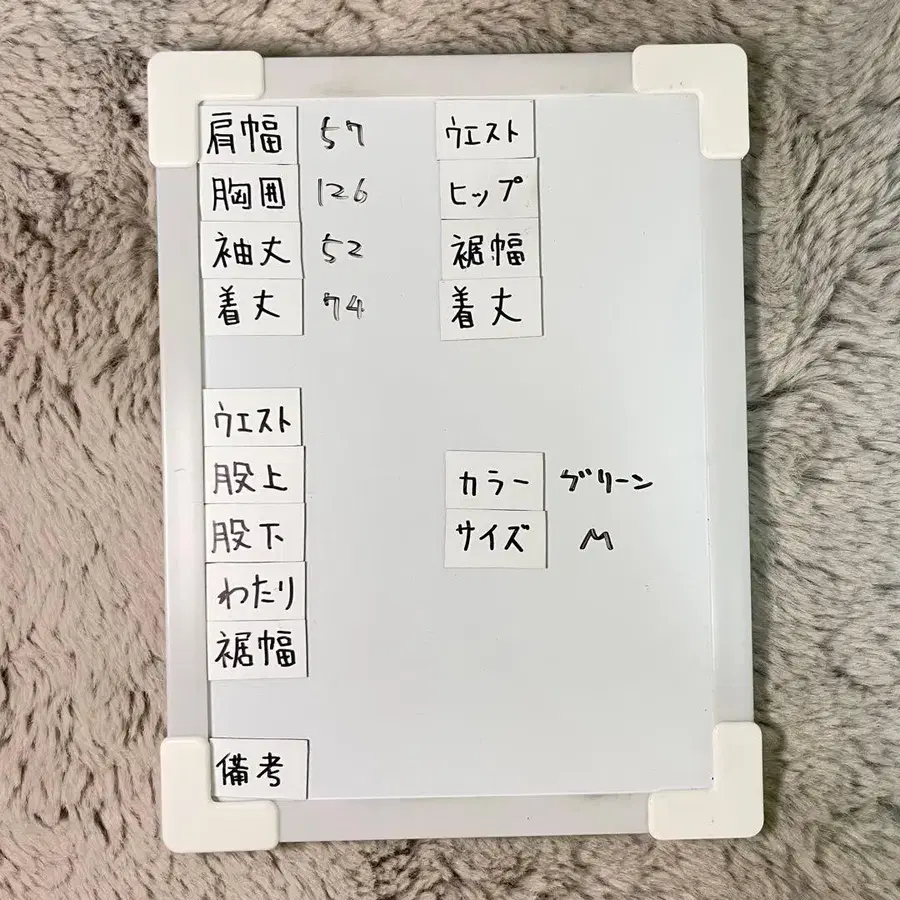 肩幅 57
胸囲 126
袖丈 52
着丈 74
ウエスト
ヒップ
裾幅
着丈
ウエスト
股上
股下
わたり
裾幅
カラー グリーン
サイズ M
備考